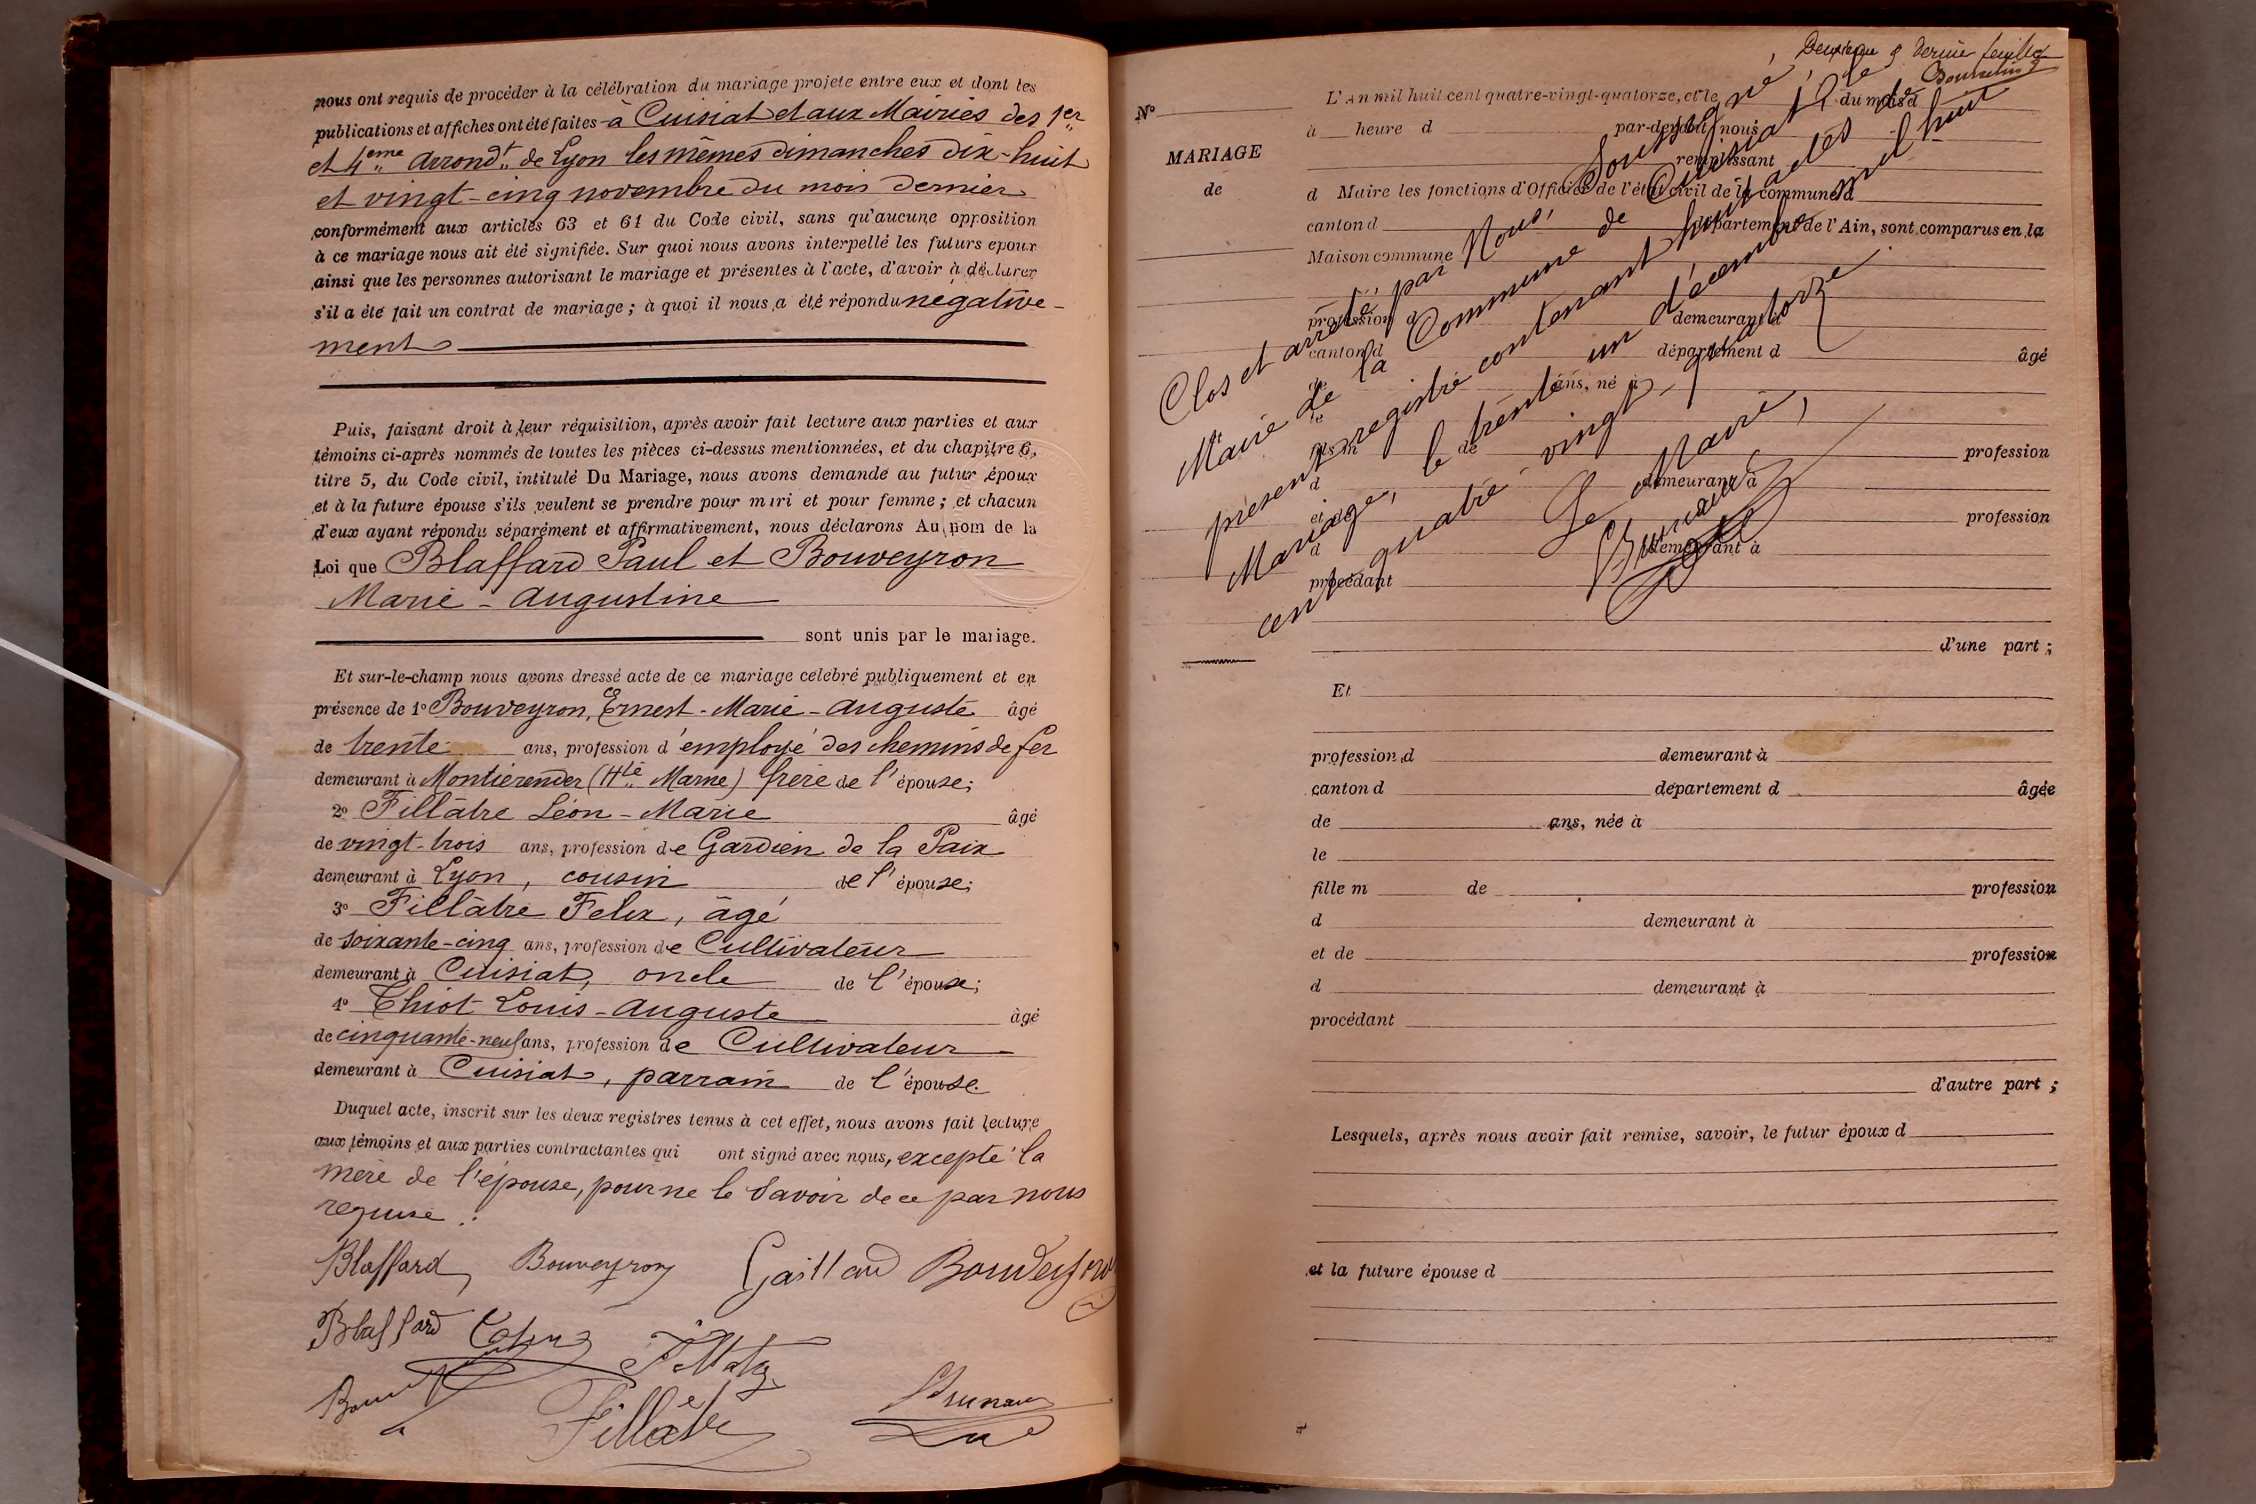 nous ont requis de procéder à la célébration du mariage projeté entre eux et dont les
publications et affiches ont été faites à Cuisiat et aux Mairies des 1er
et 4eme arrondt de Lyon les mêmes dimanches dix-huit
et vingt-cinq novembre du mois dernier
conformément aux articles 63 et 64 du Code civil, sans qu'aucune opposition
à ce mariage nous ait été signifiée. Sur quoi nous avons interpellé les futurs époux
ainsi que les personnes autorisant le mariage et présentes à l'acte, d'avoir à déclarer
s'il a été fait un contrat de mariage ; à quoi il nous a été répondu négative-
ment
Puis, faisant droit à leur réquisition, après avoir fait lecture aux parties et aux
témoins ci-après nommés de toutes les pièces ci-dessus mentionnées, et du chapitre 6,
titre 5, du Code civil, intitulé Du Mariage, nous avons demandé au futur époux
et à la future épouse s'ils veulent se prendre pour mari et pour femme ; et chacun
d'eux ayant répondu séparément et affirmativement, nous déclarons Au nom de la
Loi que Blaffard Paul et Bouveyron
Marie-Augustine
sont unis par le mariage.
Et sur-le-champ nous avons dressé acte de ce mariage célébré publiquement et en
présence de 1° Bouveyron, Ernest-Marie-Auguste âgé
de trente ans, profession d'employé des chemins de fer
demeurant à Montiérender (Hte Marne) frère de l'épouse;
2° Fillâtre Léon-Marie âgé
de vingt-trois ans, profession de Gardien de la Paix
demeurant à Lyon, cousin de l'épouse;
3° Fillâtre Felix, âgé
de soixante-cinq ans, profession de Cultivateur
demeurant à Cuisiat, oncle de l'épouse;
4° Thiot Louis-Auguste âgé
de cinquante-neuf ans, profession de Cultivateur
demeurant à Cuisiat, parrain de l'épouse
Duquel acte, inscrit sur les deux registres tenus à cet effet, nous avons fait lecture
aux témoins et aux parties contractantes qui ont signé avec nous, excepté la
mère de l'épouse, pour ne le savoir de ce par nous
requise.
Blaffard Bouveyron Gaillard Bouveyron
Blaffard
Fillatre
Fillâtre Brunaud
Deuxième & dernier feuillet
N°
MARIAGE
de
L'An mil huit cent quatre-vingt-quatorze, et le du mois d
à heure d par-devant nous
remplissant
d Maire les fonctions d'Officier de l'état civil de la commune d
canton d département de l'Ain, sont comparus en la
Maison commune
profession d demeurant à
canton d département d âgé
de ans, né à
le
fils m de profession
d demeurant à
et de profession
d demeurant à
procédant
d'une part ;
Clos et arrêté par Nous, soussigné,
Maire de la Commune de Cuisiat, le
présent registre contenant huit actes de
Mariage, le trente un décembre mil huit
cent quatre-vingt-quatorze.
Le Maire,
Brunaud
Et
profession d demeurant à
canton d département d âgée
de ans, née à
le
fille m de profession
d demeurant à
et de profession
d demeurant à
procédant
d'autre part ;
Lesquels, après nous avoir fait remise, savoir, le futur époux d
et la future épouse d